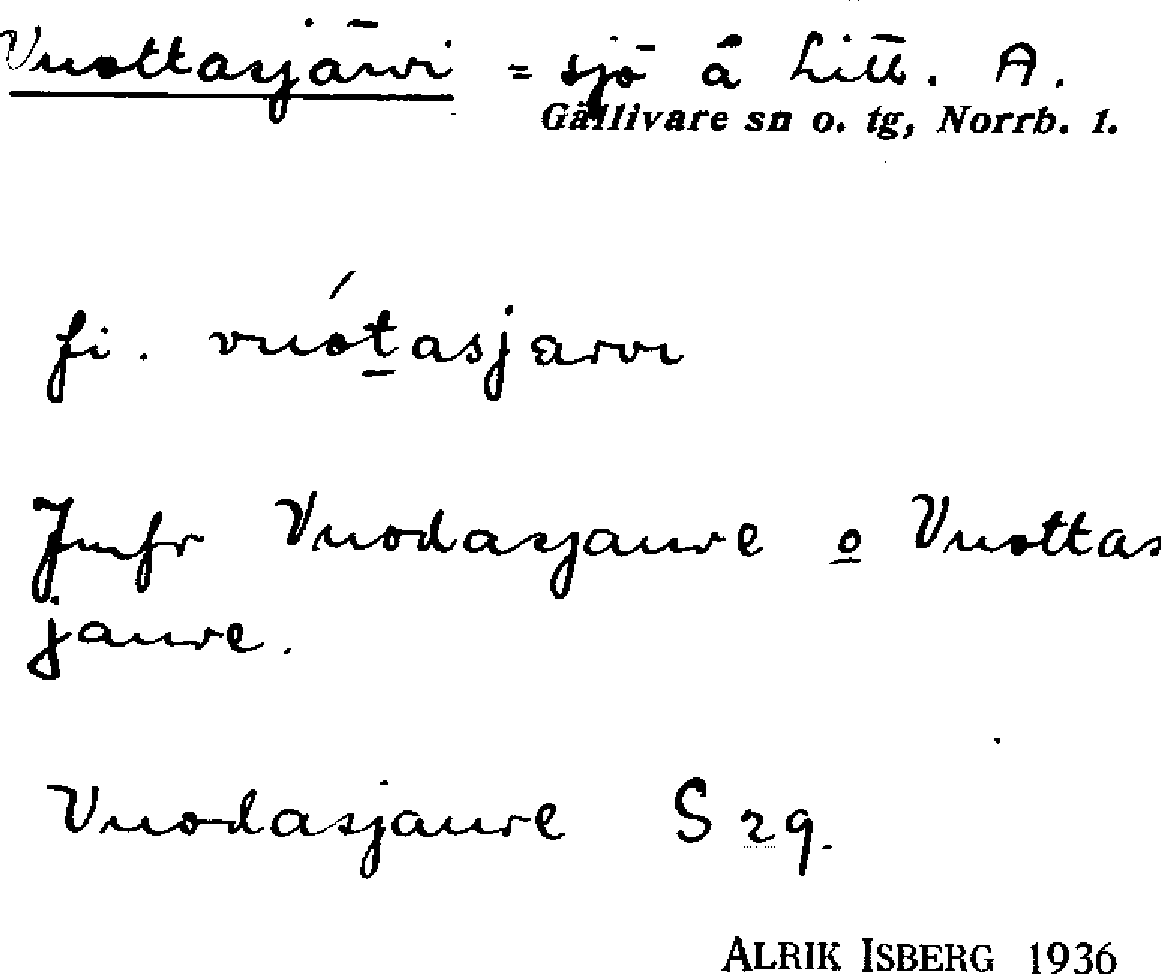 Vuottasjärvi = sjö å Litt. A.
Gällivare sn o. tg, Norrb. 1.
fi. vuótasjarvi
Jmfr Vuodasjaure o Vuottas
jaure.
Vuodasjaure S 29.
ALRIK ISBERG 1936